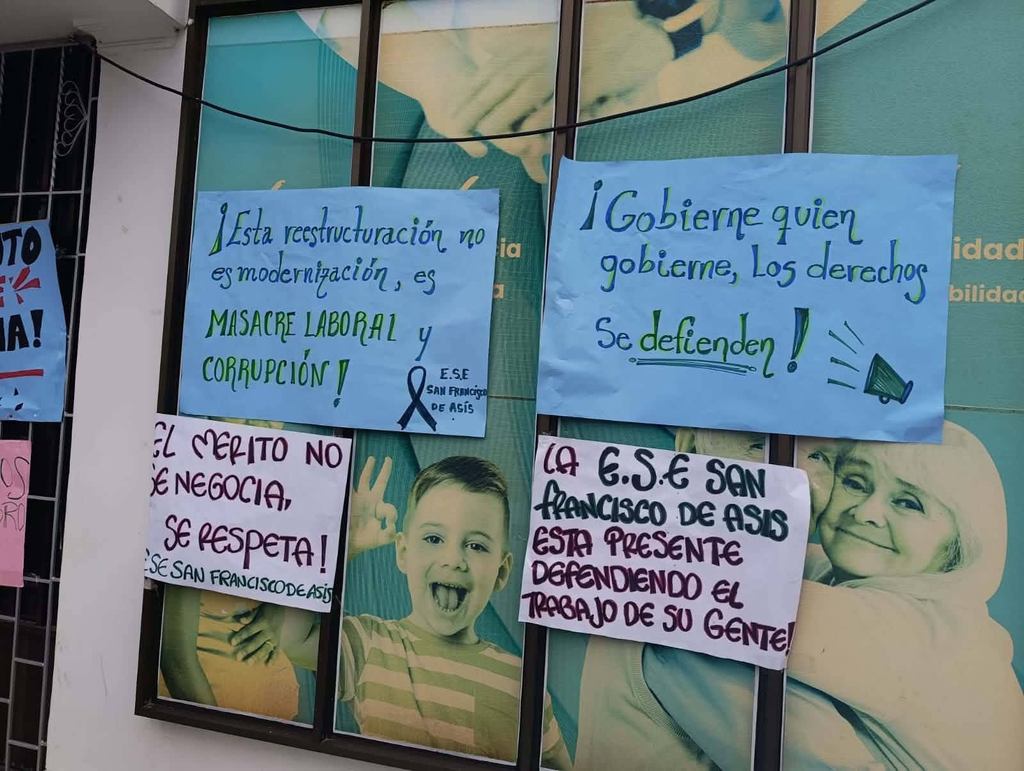 ¡Esta reestructuración no
es modernización, es
MASACRE LABORAL y
CORRUPCIÓN!
E.S.E
SAN FRANCISCO
DE ASÍS
¡Gobierne quien
gobierne, Los derechos
Se defienden!
EL MERITO NO
SE NEGOCIA,
SE RESPETA!
ESE SAN FRANCISCO DE ASIS
LA E.S.E SAN
FRANCISCO DE ASIS
ESTA PRESENTE
DEFENDIENDO EL
TRABAJO DE SU GENTE!